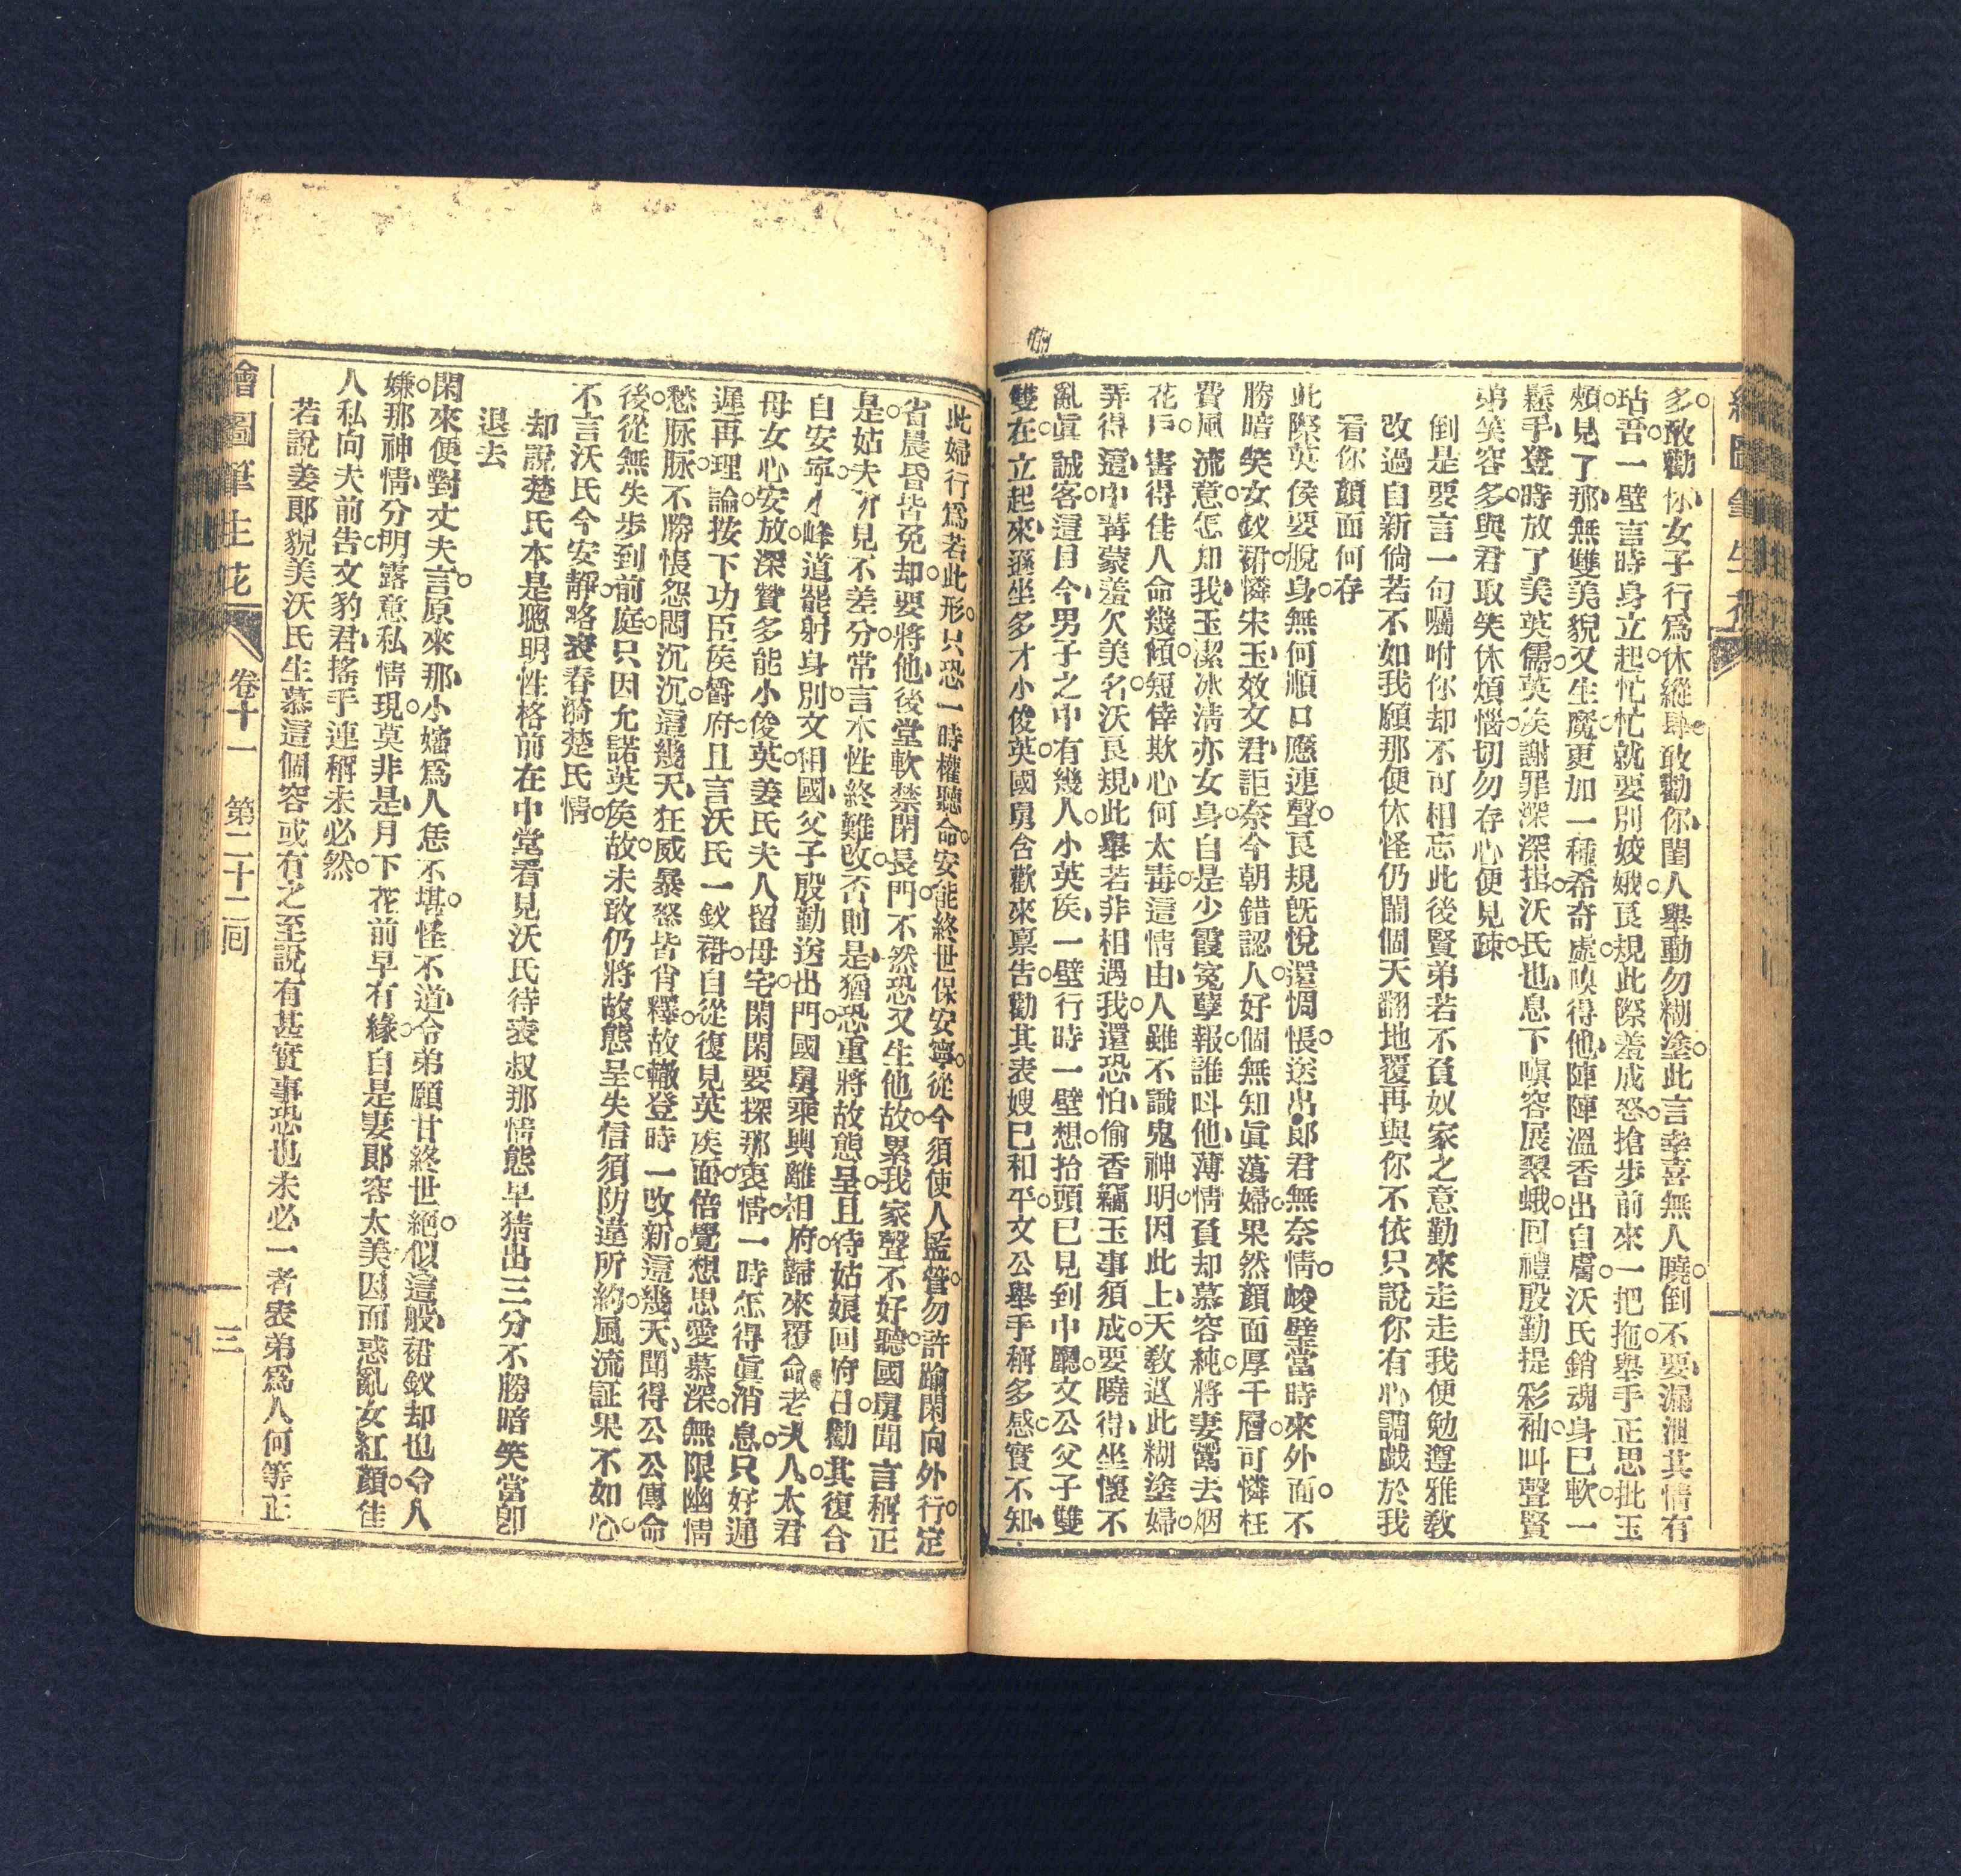 繪圖筆生花
多敢勸你女子行爲休縱肆敢勸你閨人舉動勿糊塗此言幸喜無人曉倒不要漏洩其情有
玷吾一壁言時身立起忙忙就要別姣娥良規此際羞成怒搶步前來一把拖舉手正思批玉
頰見了那無雙美貌又生魔更加一種希奇處嗅得他陣陣溫香出自膚沃氏銷魂身已軟一
鬆手登時放了美英儒英矦謝罪深深揖沃氏也息下嗔容展翠蛾回禮殷勤提彩袖叫聲賢
弟笑容多與君取笑休煩惱切勿存心便見疎
倒是要言一句囑咐你却不可相忘此後賢弟若不負奴家之意勤來走走我便勉遵雅敎
改過自新倘若不如我願那便休怪仍鬧個天翻地覆再與你不依只說你有心調戲於我
看你顏面何存
此際英侯要脫身無何順口應連聲良規旣悅還惆悵送出郎君無奈情峻璧當時來外面不
勝暗笑女釵裙憐宋玉效文君詎奈今朝錯認人好個無知眞蕩婦果然顏面厚千層可憐枉
費風流意怎知我玉潔冰淸亦女身自是少霞寃孽報誰叫他薄情負却慕容純將妻鬻去烟
花戶害得佳人命幾傾短倖欺心何太毒這情由人雖不識鬼神明因此上天敎遇此糊塗婦
弄得還中冓蒙羞欠美名沃良規此舉若非相遇我還恐怕偷香竊玉事須成要曉得坐懷不
亂眞誠客這目今男子之中有幾人小英矦一壁行時一壁想抬頭已見到中廳文公父子雙
雙在立起來遜坐多才小俊英國舅含歡來禀告勸其表嫂已和平文公舉手稱多感實不知
此婦行爲若此形只恐一時權聽命安能終世保安寧從今須使人監管勿許踰閑向外行定
省晨昏皆免却要將他後堂軟禁閉長門不然恐又生他故累我家聲不好聽國舅聞言稱正
是姑夫所見不差分常言本性終難改否則是猶恐重將故態呈且待姑娘回府日勸其復合
自安寧小峰道罷躬身別文相國父子殷勤送出門國舅乘輿離相府歸來覆命老夫人太君
母女心安放深贊多能小俊英姜氏夫人留母宅閑閑要探那衷情一時怎得眞消息只好遲
遲再理論按下功臣矦爵府且言沃氏一釵裙自從復見英矦面倍覺想思愛慕深無限幽情
愁脉脉不勝悵怨悶沉沉這幾天狂威暴怒皆肯釋故轍登時一改新這幾天聞得公公傳命
後從無失步到前庭只因允諾英矦故未敢仍將故態呈失信須防違所約風流証果不如心
不言沃氏今安靜略表春漪楚氏情
却說楚氏本是聰明性格前在中堂看見沃氏待表叔那情態早猜出三分不勝暗笑當卽
退去
閑來便對丈夫言原來那小嬸爲人恁不堪怪不道令弟願甘終世絕似這般裙釵却也令人
嫌那神情分明露意私情現莫非是月下花前早有緣自是妻郞容太美因而惑亂女紅顏佳
人私向夫前告文豹君搖手連稱未必然
若說姜郎貌美沃氏生慕這個容或有之至說有甚實事恐也未必一者表弟爲人何等正
繪圖筆生花 卷十一 第二十二回 三